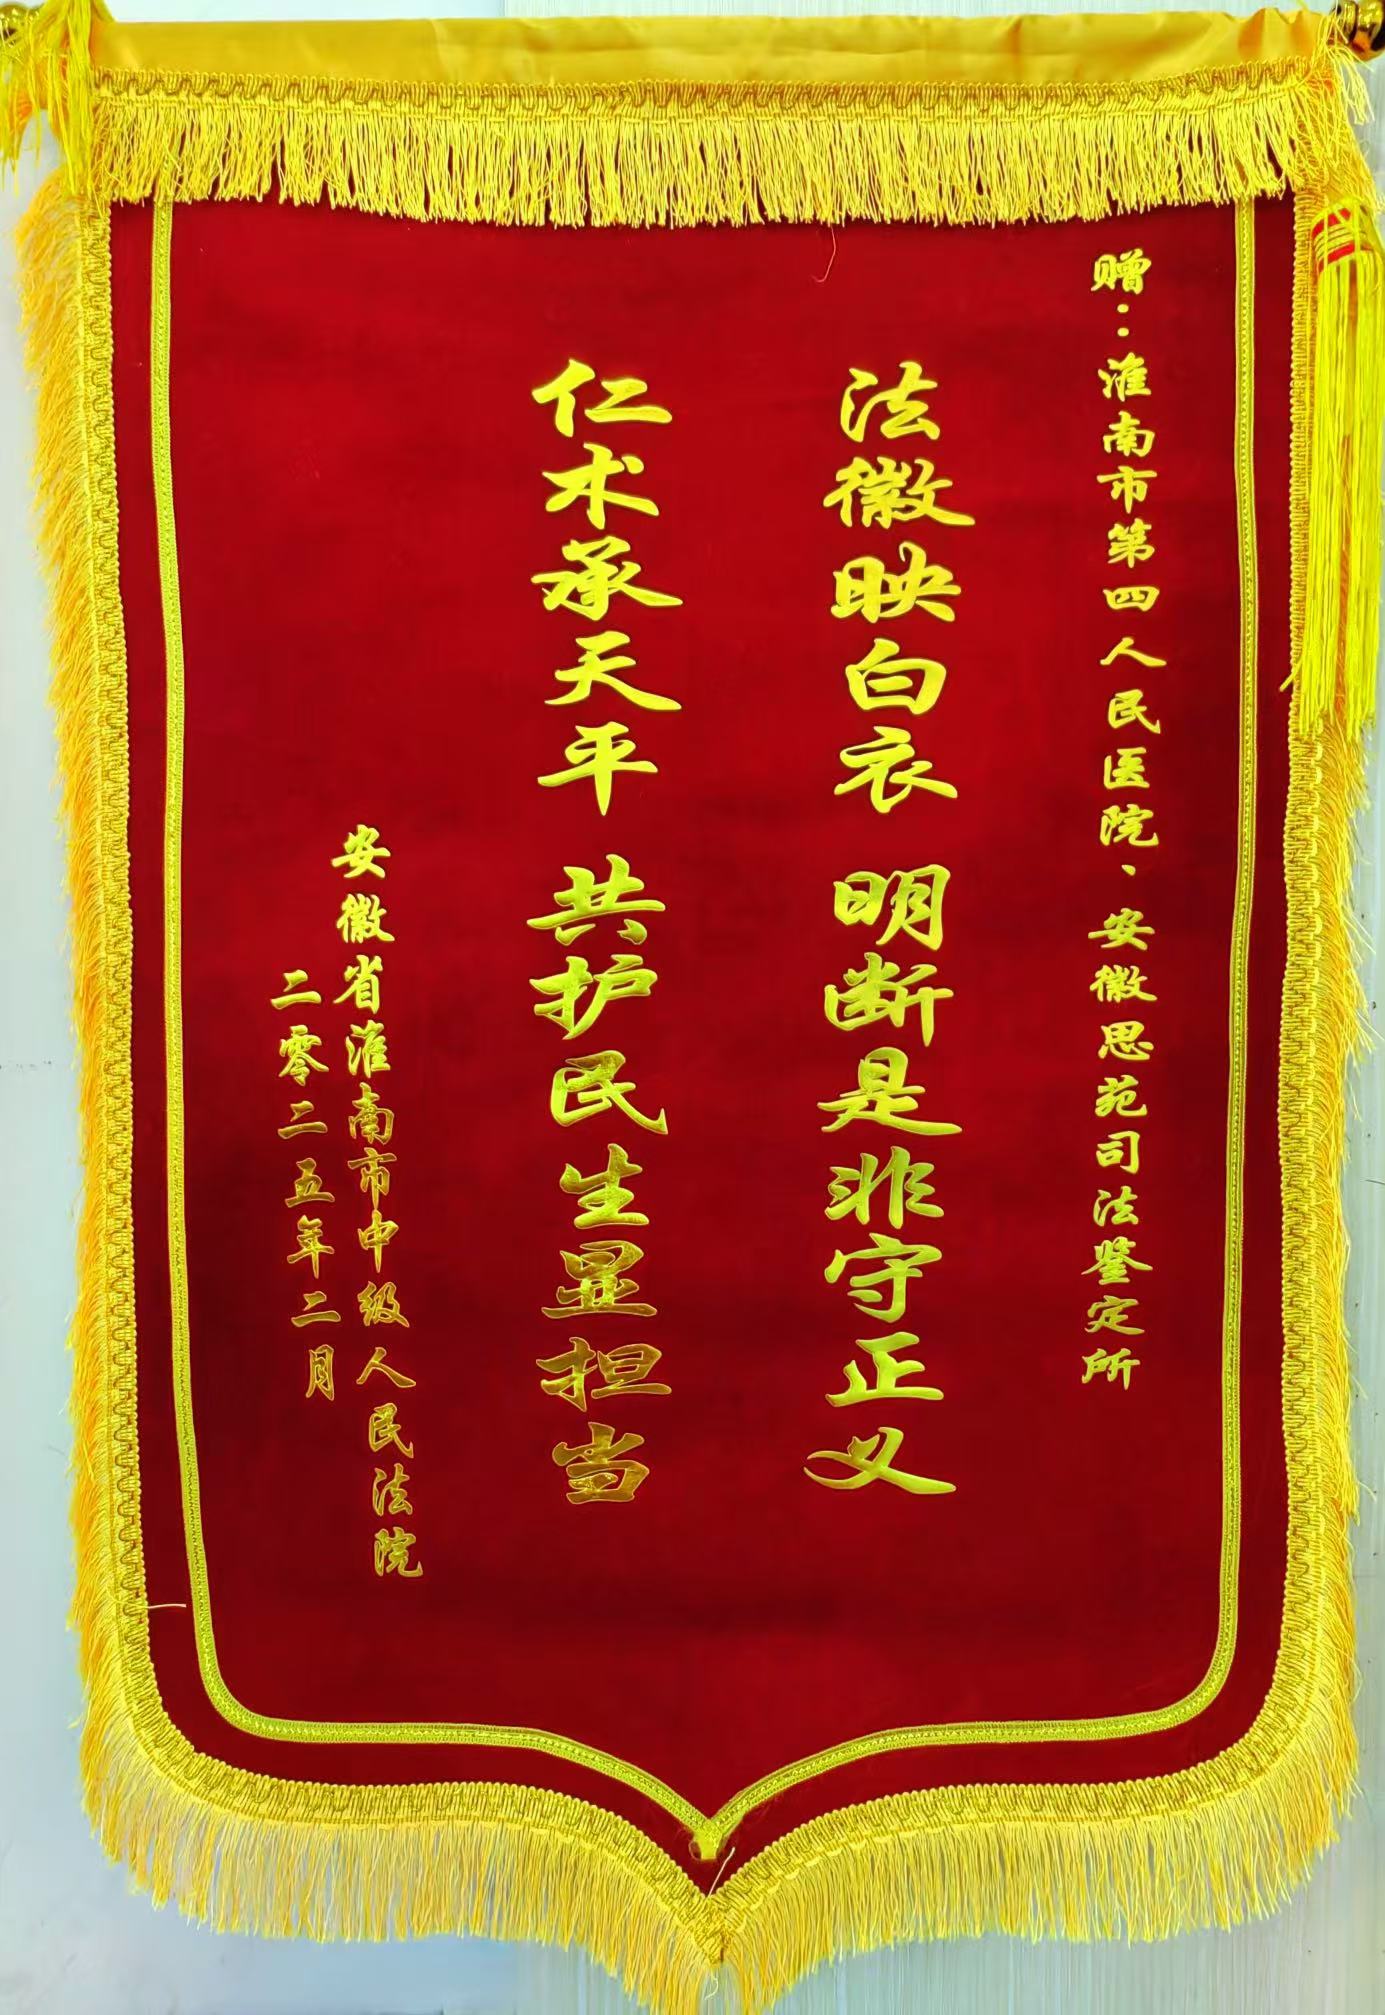 赠：淮南市第四人民医院、安徽思苑司法鉴定所
法徽映白衣 明断是非守正义
仁术承天平 共护民生显担当
安徽省淮南市中级人民法院
二零二五年二月